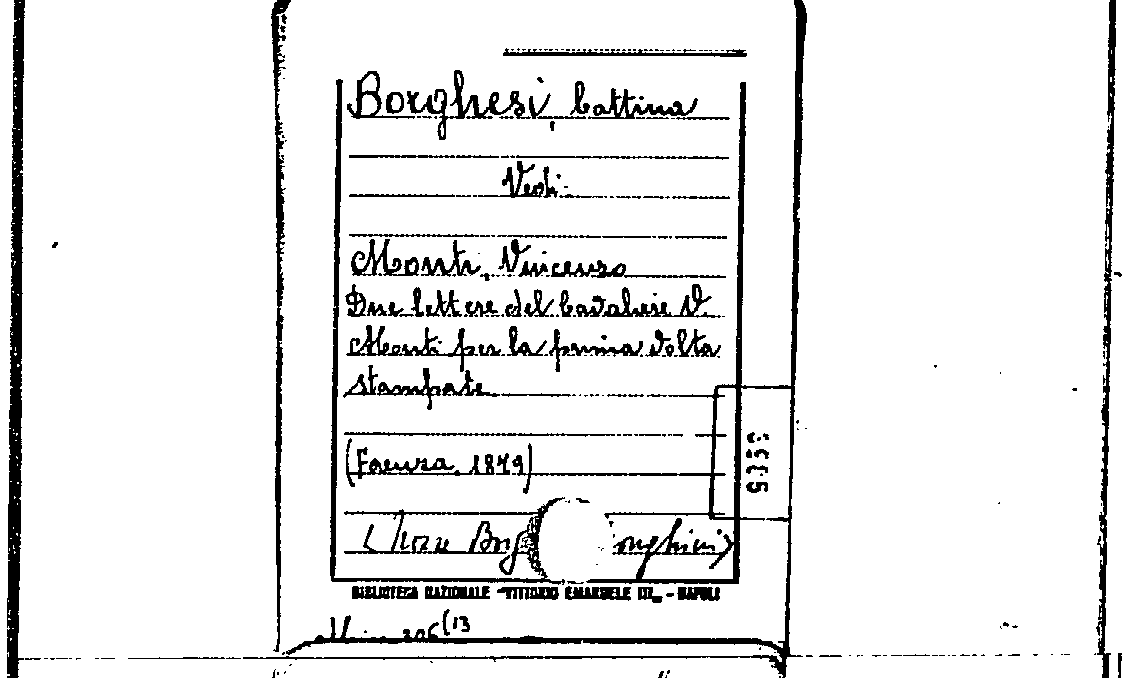 Borghesi, Cattina
Vedi
Monti, Vincenzo
Due lettere del Cavaliere V.
Monti per la prima volta
stampate
(Faenza, 1879)
(Nozze
BIBLIOTECA NAZIONALE "VITTORIO EMANUELE III" - NAPOLI
(13